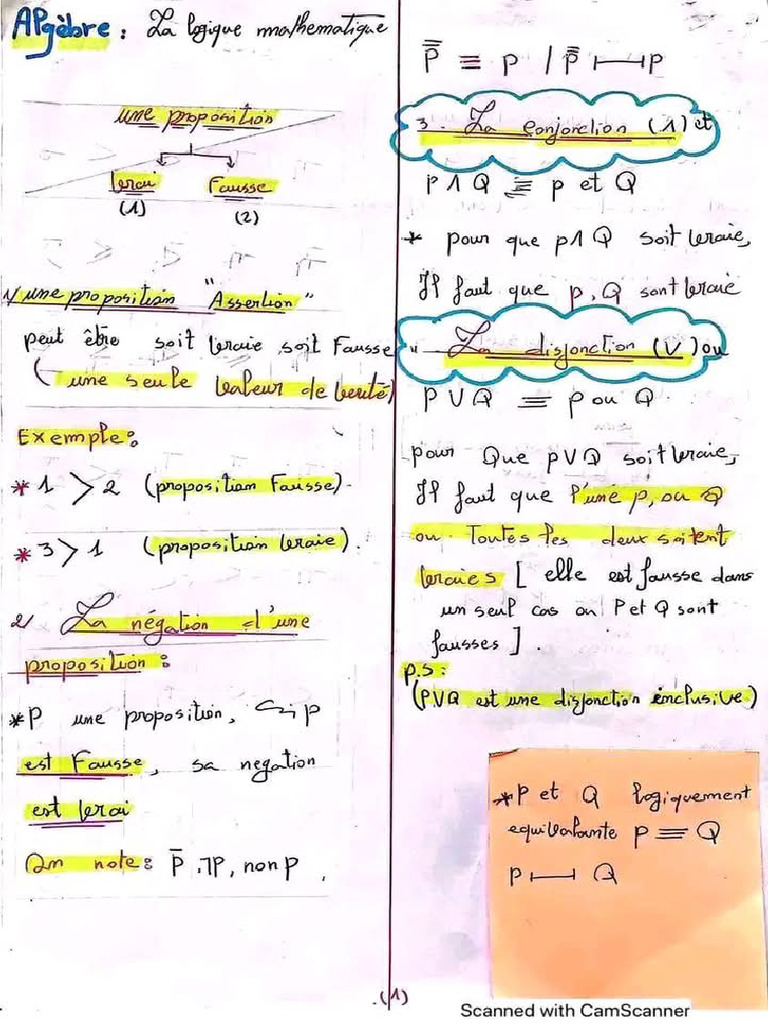 Algèbre : La logique mathematique
une proposition
Vrai Fausse
(1) (2)
1/ une proposition "Assertion"
peut être soit vraie soit Fausse
(une seule valeur de verité)
Exemple :
* 1 > 2 (proposition Fausse)
* 3 > 1 (proposition vraie).
2/ La négation d'une
proposition :
* P une proposition, p
est Fausse, sa negation
est vrai
On note : P̄, ⌐p, non p.
P̿ ≡ p / P̿ ⟼ p
3. La conjonction (∧) et
P ∧ Q ≡ p et Q
* pour que p∧Q soit vraie,
Il faut que p, Q sont vraie
La disjonction (V) ou
P V Q ≡ p ou Q
pour Que pVQ soit vraie,
Il faut que l'une p, ou Q
ou Toutes les deux soient
vraies [ elle est fausse dans
un seul cas où P et Q sont
fausses ].
P.S :
(PVQ est une disjonction inclusive)
* P et Q logiquement
equivalante P ≡ Q
P ⟼ Q
(1)
Scanned with CamScanner